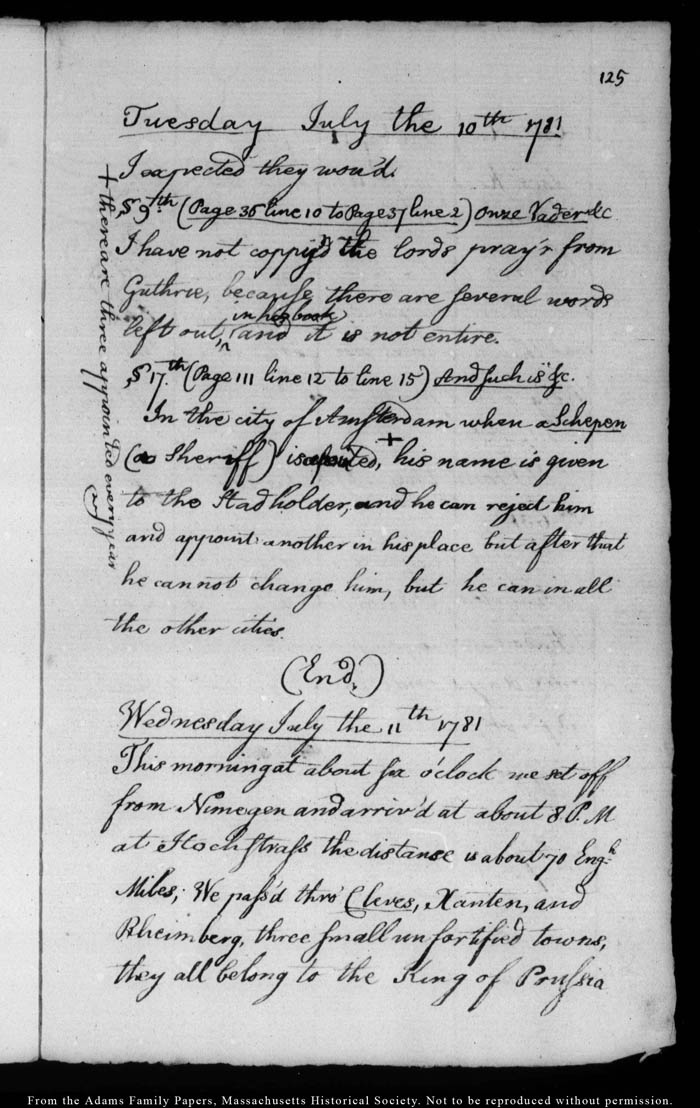 125
Tuesday July the 10th 1781
I expected they wou'd.
§ 9th (Page 36 line 10 to Page 37 line 2) Onze Vader &c
I have not coppy'd the lords pray'r from
Guthrie, because there are several words
left out, in his book and it is not entire.
§ 17th (Page 111 line 12 to line 15) And such is &c.
In the city of Amsterdam when a Schepen
(a Sheriff) is +, his name is given
to the Stadholder, and he can reject him
and appoint another in his place but after that
he cannot change him, but he can in all
the other cities.
(End.)
+ there are three appointed every year
Wednesday July the 11th 1781
This morning at about six o'clock we set off
from Nimegen and arriv'd at about 8 P.M
at Hochstrass the distance is about 70 Engh
Miles; We pass'd thro' Cleves, Xanten, and
Rheimberg, three small unfortified towns,
they all belong to the King of Prussia
From the Adams Family Papers, Massachusetts Historical Society. Not to be reproduced without permission.